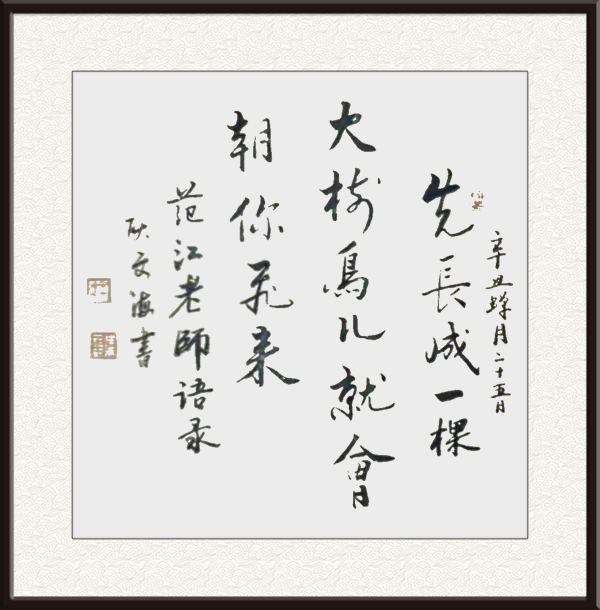 辛丑蝉月二十五日
先長成一棵
大樹鳥儿就會
朝你飛来
范江老師语录
耿文海書